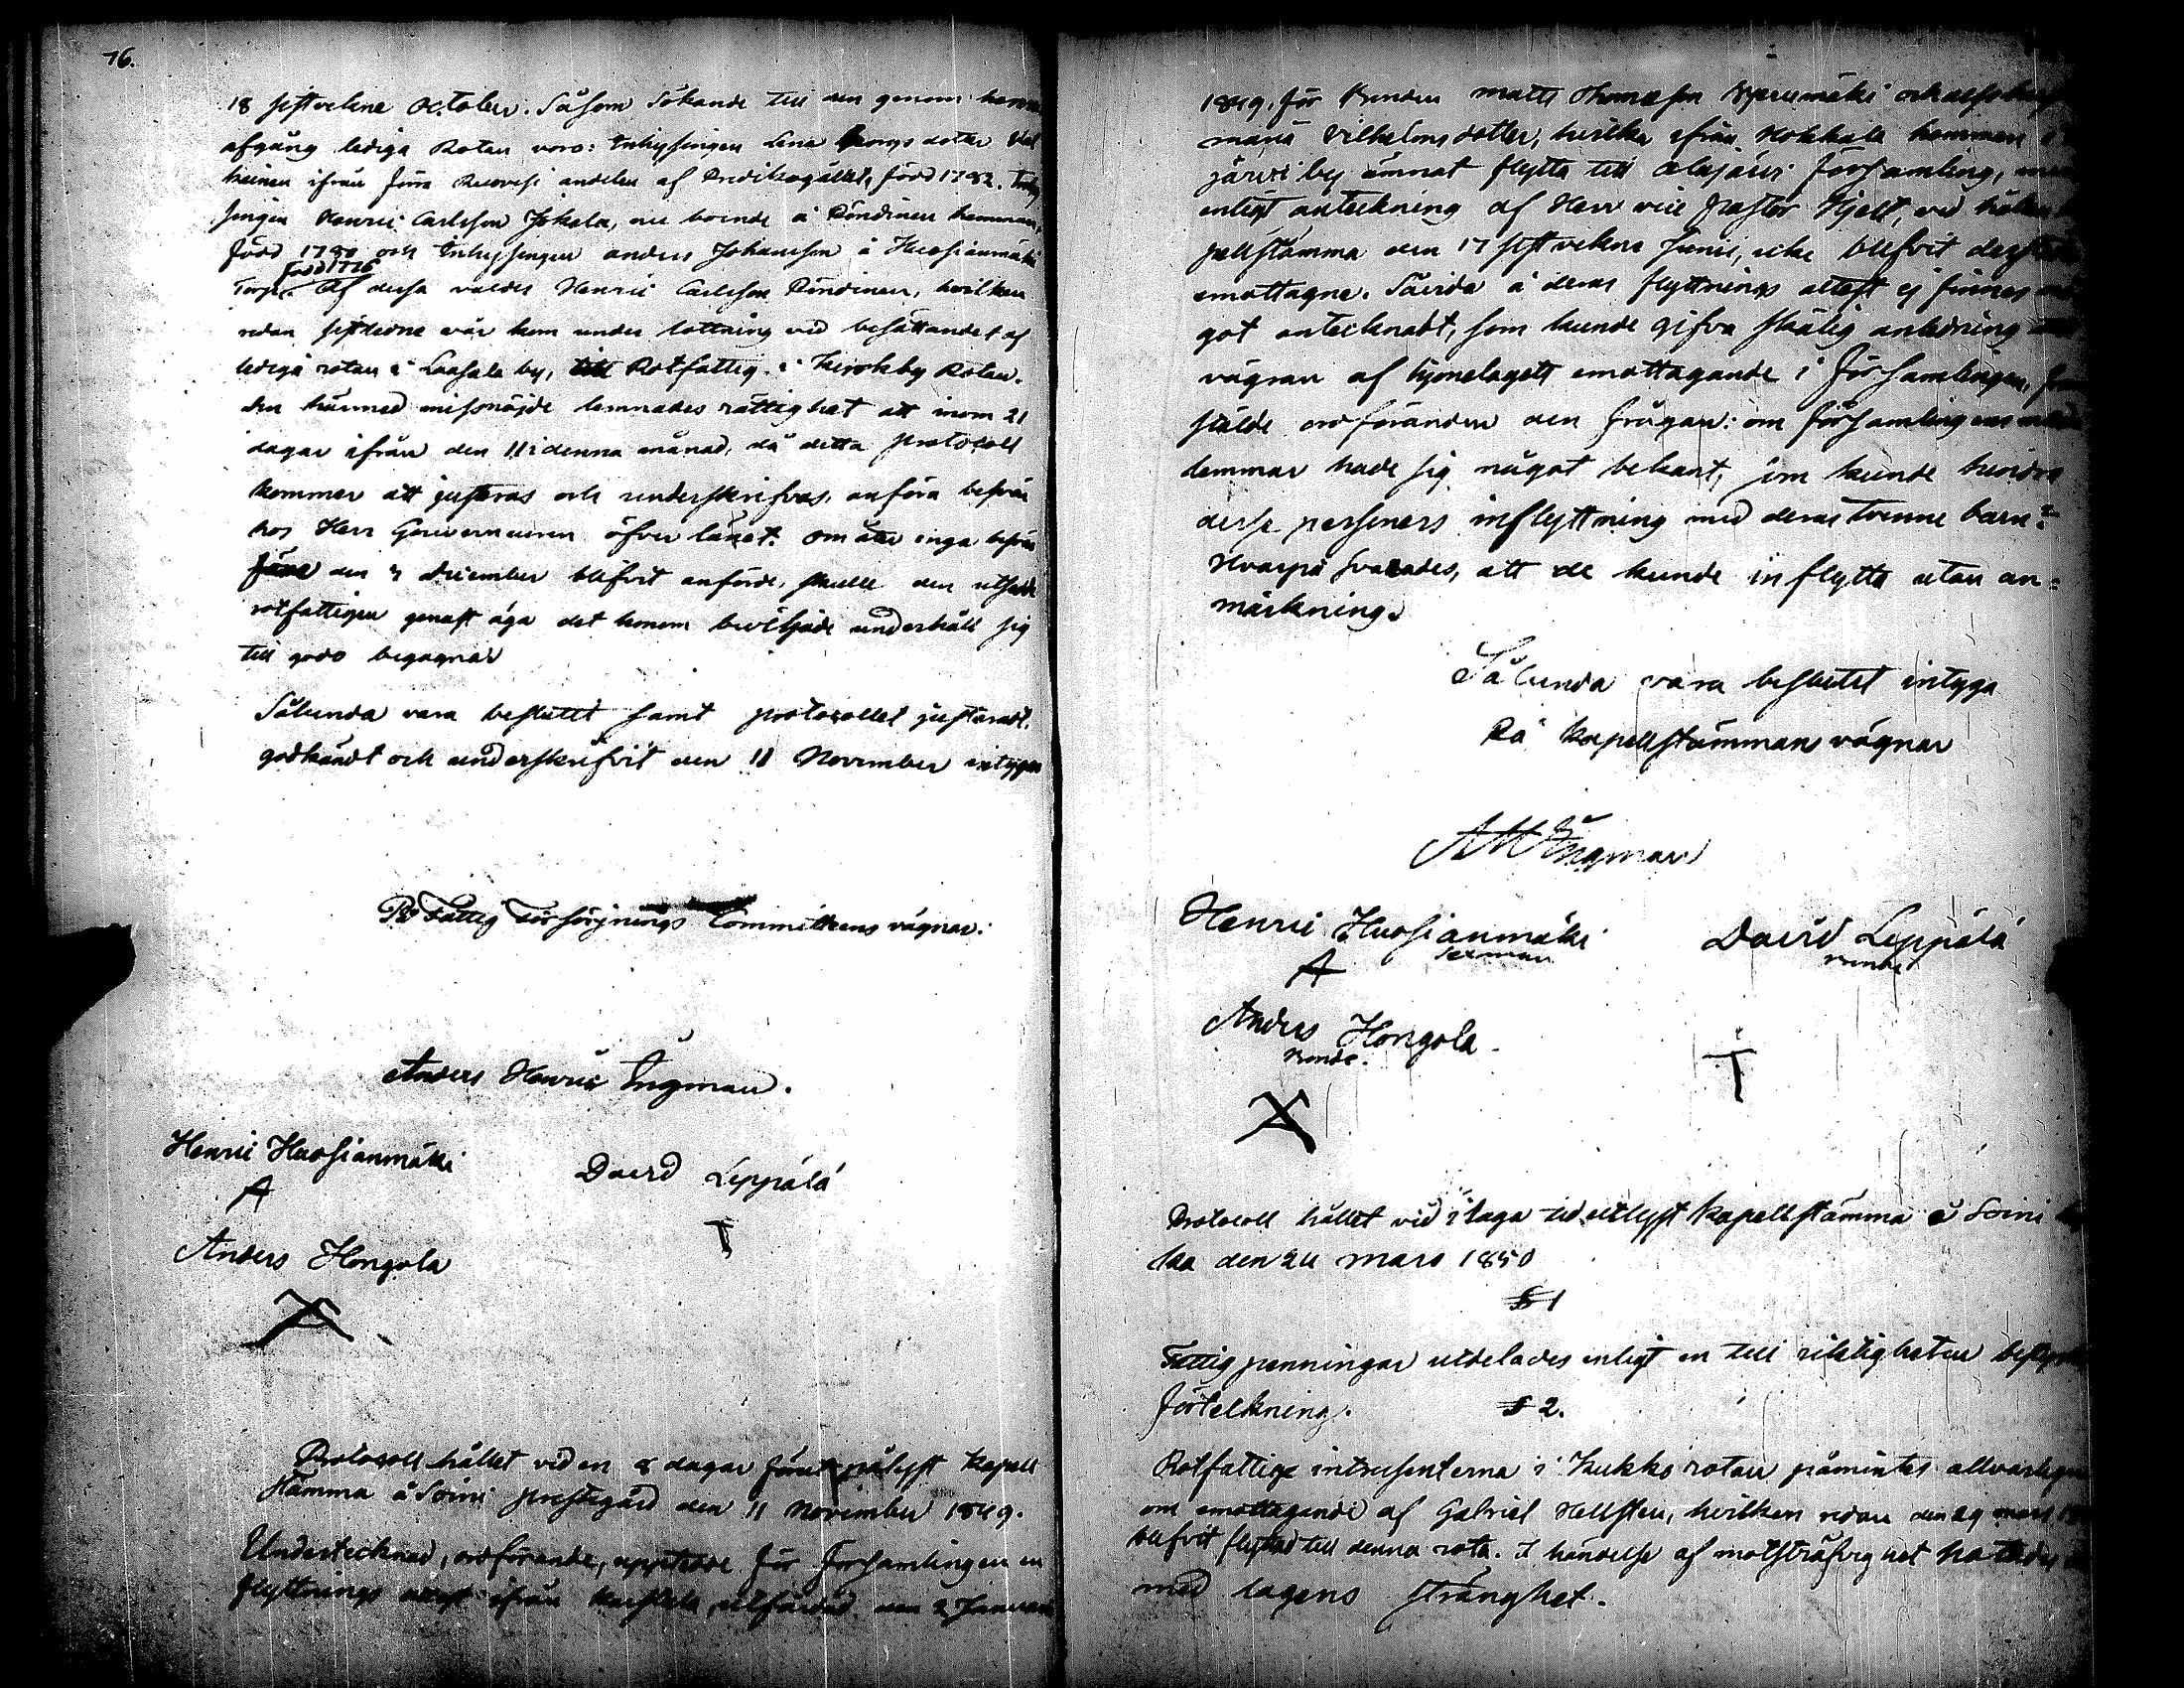 76.
18 sistvekne October. Såsom Sökande till den genom hennes
afgång lediga Rotan voro: Inhysingen Lena Georgsdotter
ifrån Jura Ruovesi andelen af Predikogället, född 1782.
singen Henric Carlsson Jokela, nu boende å Pöndinen hemman,
född 1780 och Inhysingen Anders Johansson å Huosianmäki
född 1776
Torp. Af dessa valdes Henric Carlsson Pöndinen, hvilken
redan sistledne vår kom under lottning vid besättandet af
lediga rotan i Laasala by, till Rotfattig i Kirokby Rotan.
den härmed missnöjde lemnades rättighet att inom 21
dagar ifrån den 11 i denna månad, då detta protocoll
kommer att justeras och underskrifvas, anföra besvär
hos Herr Gouverneuren öfver länet. Om åter inga besvär
före den 2 december blifvit anförde, skulle den utsedde
rotfattigen genast äga det honom beviljade underhåll sig
till godo begagna
Sålunda vara beslutit samt protocollet justeradt,
godkändt och underskrifvit den 11 November intyga
På Fattig Försörjnings Committéens vägnar:
Anders Henric Ingman.
Henric Huosianmäki
A
David Leppälä
T
Anders Hongola
Protocoll hållet vid en 8 dagar förut pålyst Kapell
stämma å Soini prestegård den 11 November 1849.
Undertecknad, ordförande, uppteedde för församlingen en
flyttnings attest ifrån utfärdad den 2 Januari
1849, för Bonden Matts Thomasson och dess hustru
Maria Vilhelmsdotter, hvilka ifrån Kokkola hemman i
järvi by ämnat flytta till Alajärvi församling, men
enligt anteckning af Herr vice pastor Hjelt, vid hållen
pellstämma den 17 sistvekne Junii, icke blifvit derstädes
emottagne. Såvida å deras flyttnings attest ej finnes nå-
got antecknadt, som kunde gifva skälig anledning till
vägran af hjonelagets emottagande i församlingen,
stälde ordföranden den frågan: om församlingens med-
lemmar hade sig något bekant, som kunde hindra
dessa personers inflyttning med deras tvenne barn?
Hvarpå svarades, att de kunde inflytta utan an=
märkning.
Sålunda vara beslutet intyga
På Kapellstämmans vägnar
AH Ingman
Henric Huosianmäki
Sexman
A
David Leppälä
Bonde
T
Anders Hongola
Bonde.
Protocoll hållet vid i laga tid utlyst Kapellstämma å Soini
kka den 24 Mars 1850
§ 1
Fattig penningar utdelades enligt en till riktigheten bestyrkt
förteckning.
§ 2.
Rotfattige intressenterna i Kukko rotan påmintes allvarligen
om emottagande af Gabriel Hellsten, hvilken redan den 29 mars
blifvit flyttad till denna rota. I händelse af motsträfvighet hotades
med lagens stränghet.